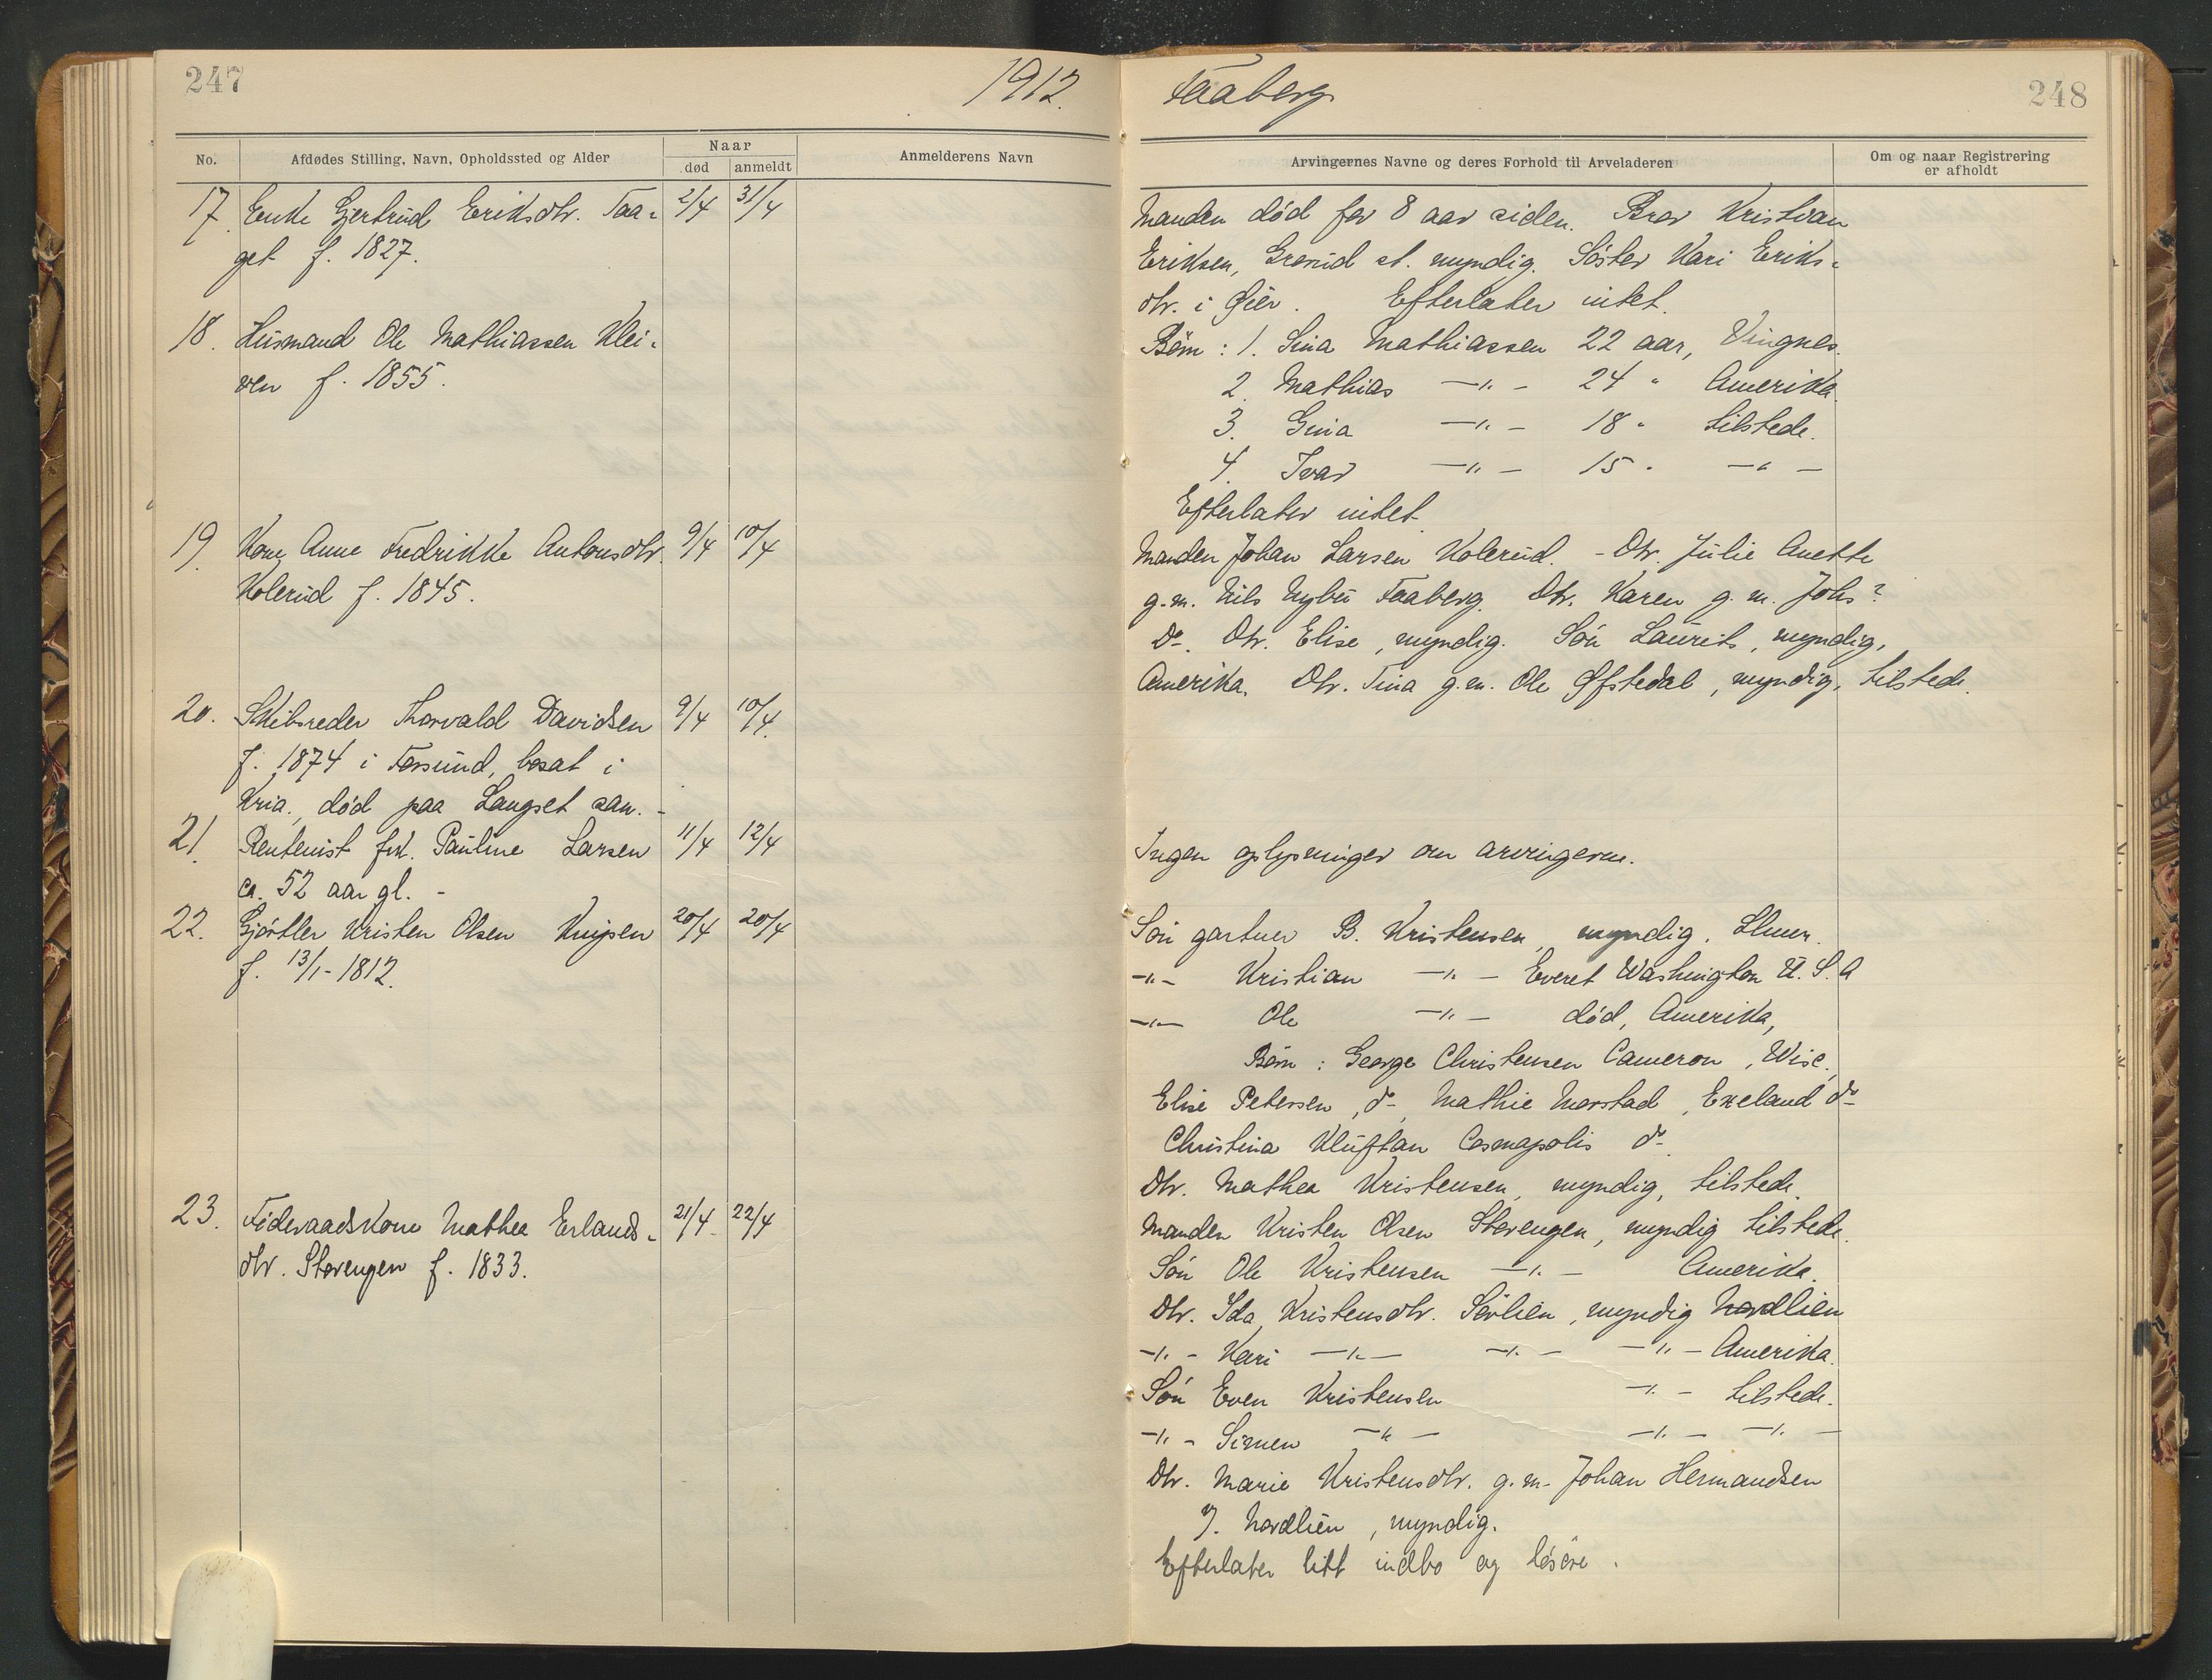 247
1912.
Faaberg
248
No.
Afdødes Stilling, Navn, Opholdssted og Alder
Naar
død
anmeldt
Anmelderens Navn
Arvingernes Navne og deres Forhold til Arveladeren
Om og naar Registrering
er afholdt
17. Enke Gjertrud Eriksdtr. Taa- 2/4 31/4
get f. 1827.
Manden død for 8 aar siden. Bror Kristian
Eriksen, Grørud st. myndig. Søster Kari Eriks-
dtr. i Øier. Efterlater intet.
18. Husmand Ole Mathiassen Klei-
ven f. 1855.
Børn: 1. Sina Mathiassen 22 aar, Vingnes.
2. Mathias —"— 24 " Amerika.
3. Gina —"— 18 " tilstede.
4. Ivar —"— 15 " —"—
Efterlater intet
19. Kone Anne Fredrikke Antonsdtr. 9/4 10/4
Kolerud f. 1845.
Manden Johan Larsen Kolerud. - Dtr. Julie Anette
g.m. Nils Nybu Faaberg. Dtr. Karen g.m. Johs?
Do. Dtr. Elise, myndig. Søn Laurits, myndig,
Amerika. Dtr. Tina g.m. Ole Øfstedal, myndig, tilstede.
20. Skibsreder Thorvald Davidsen 9/4 10/4.
f. 1874 i Farsund, bosat i
Kria., død paa Langset san. -
21. Rentenist frk. Pauline Larsen 11/4 12/4
ca. 52 aar gl. -
Ingen oplysninger om arvingerne.
22. Gjørtler Kristen Olsen Knipen 20/4 20/4
f. 13/1-1812.
Søn gartner B. Kristensen, myndig. Lhmr.
—"— Kristian —"— Everet Washington U.S.A
—"— Ole —"— død, Amerika,
Børn: George Christensen Cameron, Wisc.,
Elise Petersen, do, Mathie Morstad, Exeland do
Christina Kluftan Cosmapolis do.
Dtr. Mathea Kristensen, myndig, tilstede.
23. Føderaadskone Mathea Erlands- 21/4 22/4
dtr. Storengen f. 1833.
Manden Kristen Olsen Storengen, myndig tilstede.
Søn Ole Kristensen —"— Amerika.
Dtr. Ida Kristensdtr. Sørlien, myndig Nordlien
—"— Kari —"— —"— —"— Amerika.
Søn Even Kristensen —"— tilstede.
—"— Simen —"— —"— —"—
Dtr. Marie Kristensdtr. g.m. Johan Hermandsen
Nordlien, myndig.
Efterlater litt indbo og løsøre.